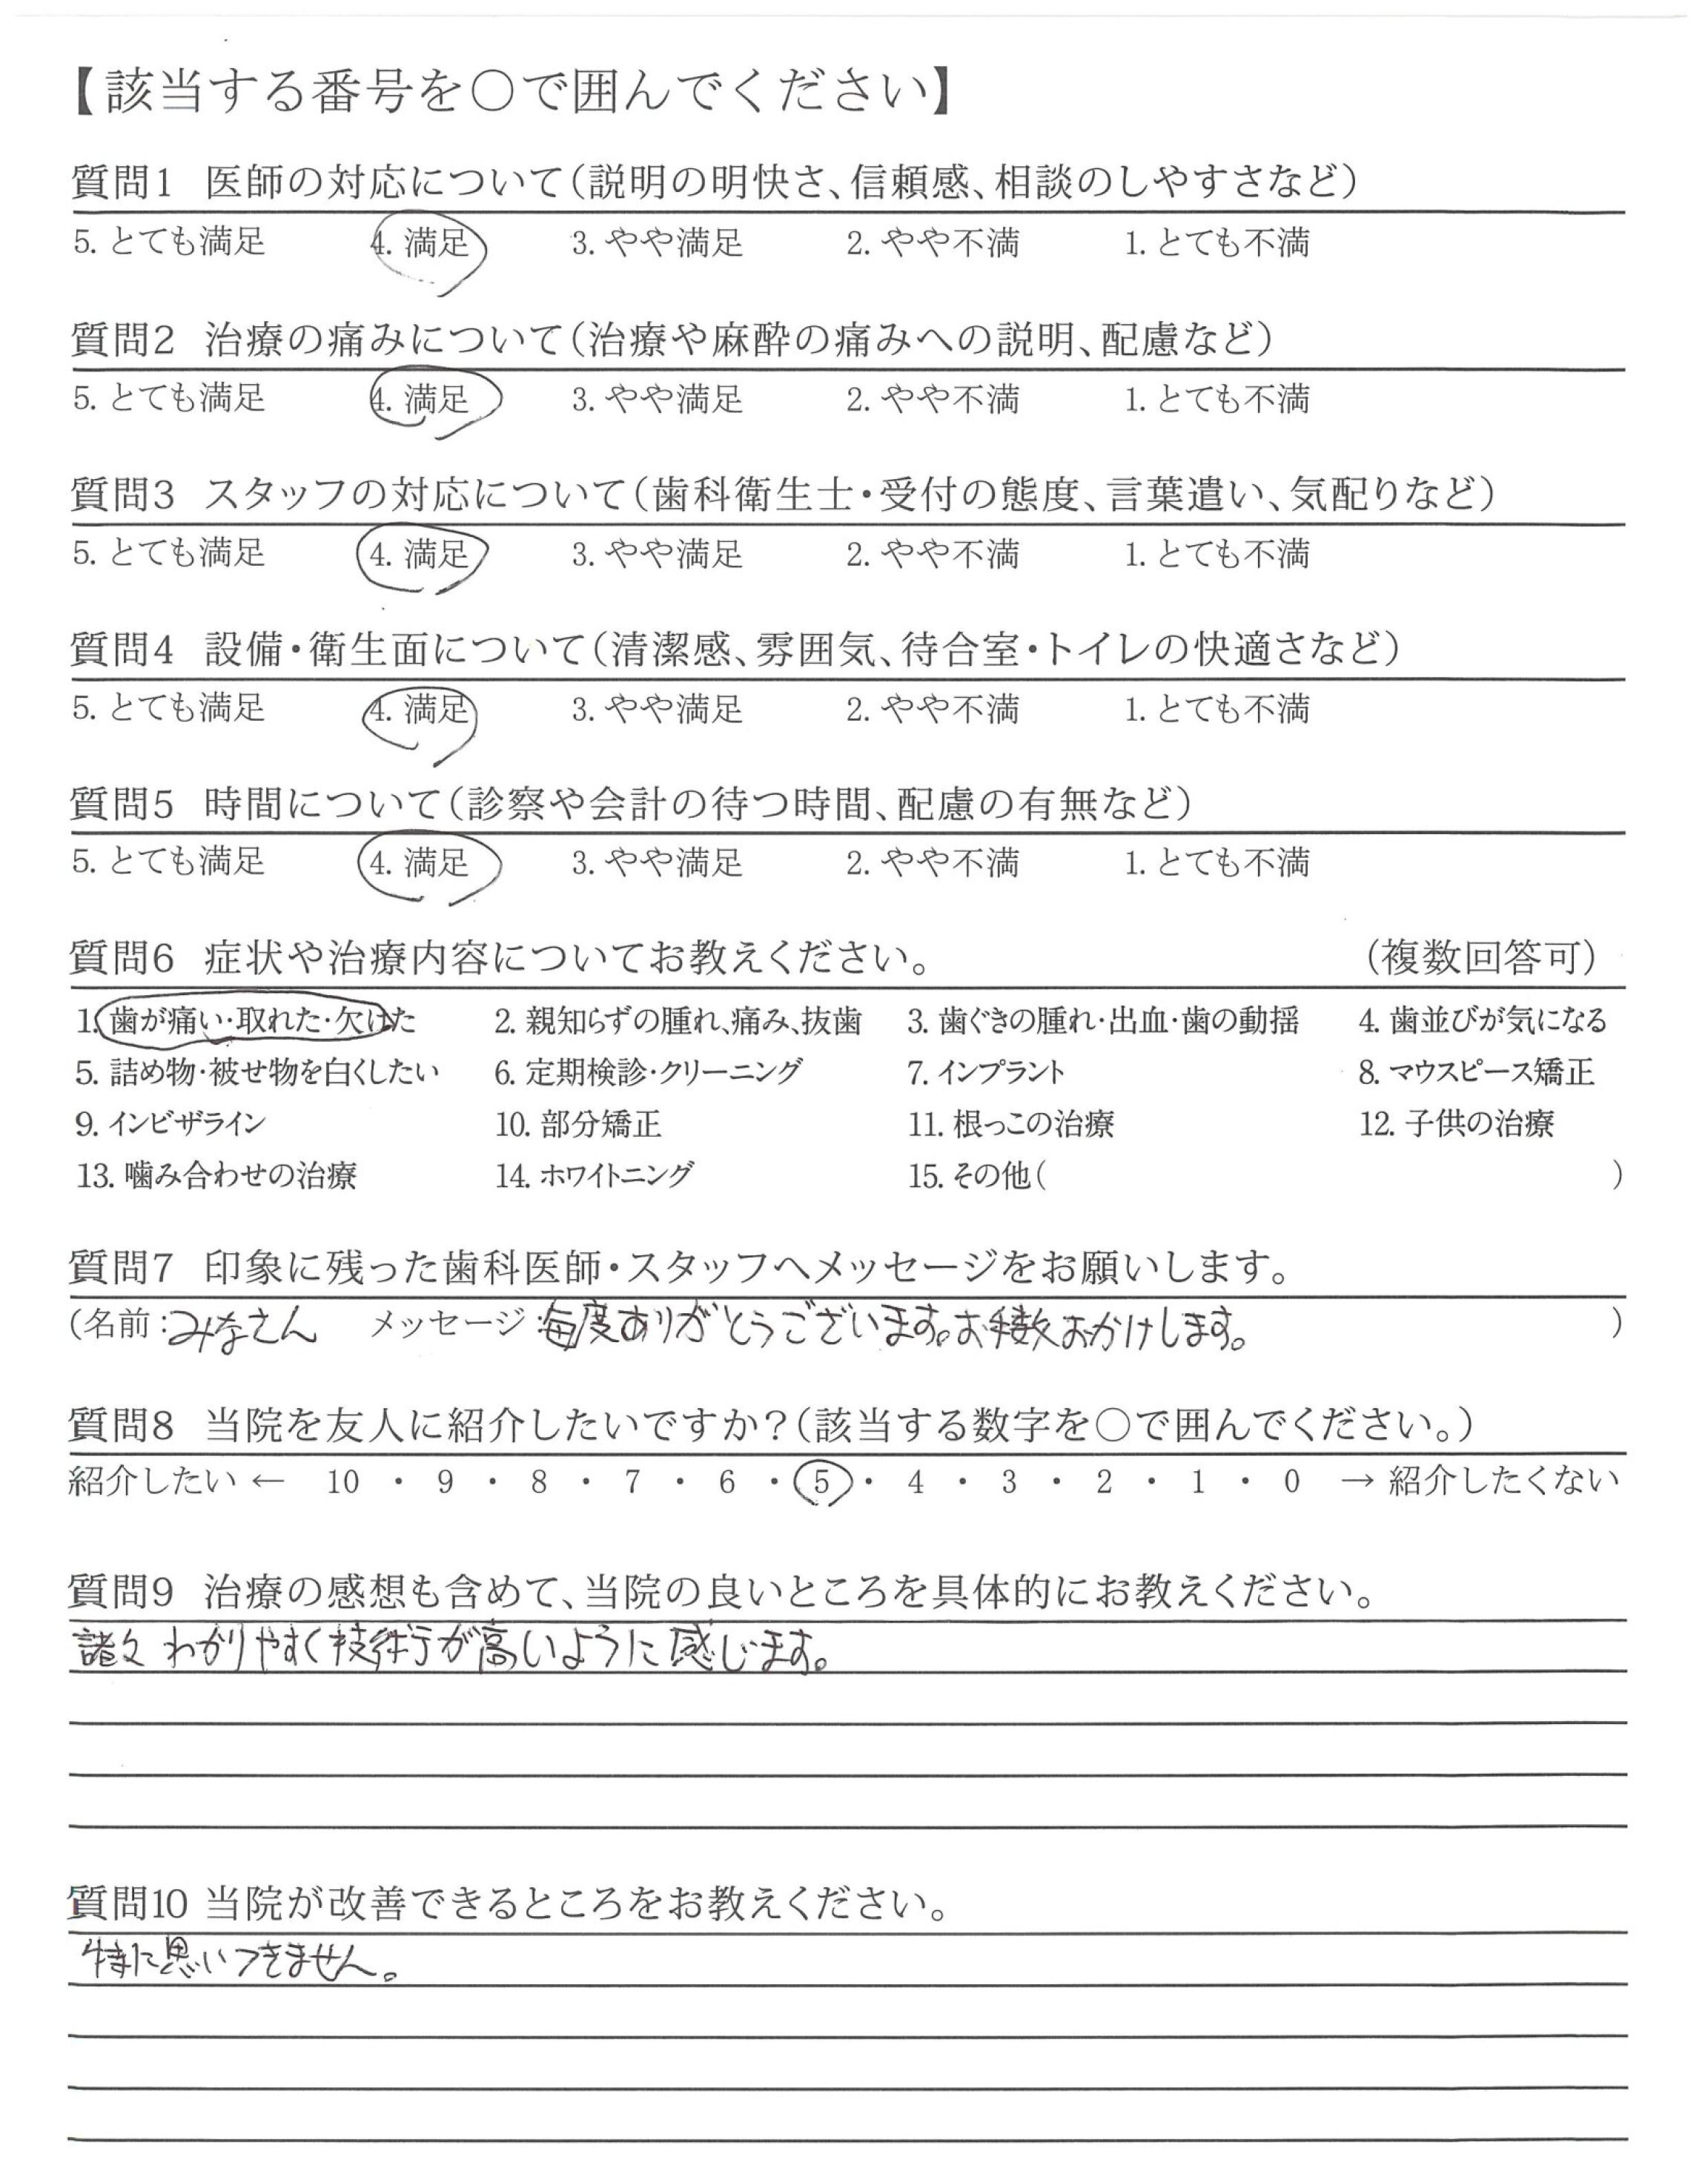 【該当する番号を○で囲んでください】
質問1 医師の対応について(説明の明快さ、信頼感、相談のしやすさなど)
5. とても満足 4. 満足 3. やや満足 2. やや不満 1. とても不満
質問2 治療の痛みについて(治療や麻酔の痛みへの説明、配慮など)
5. とても満足 4. 満足 3. やや満足 2. やや不満 1. とても不満
質問3 スタッフの対応について(歯科衛生士・受付の態度、言葉遣い、気配りなど)
5. とても満足 4. 満足 3. やや満足 2. やや不満 1. とても不満
質問4 設備・衛生面について(清潔感、雰囲気、待合室・トイレの快適さなど)
5. とても満足 4. 満足 3. やや満足 2. やや不満 1. とても不満
質問5 時間について(診察や会計の待つ時間、配慮の有無など)
5. とても満足 4. 満足 3. やや満足 2. やや不満 1. とても不満
質問6 症状や治療内容についてお教えください。 (複数回答可)
1. 歯が痛い・取れた・欠けた 2. 親知らずの腫れ、痛み、抜歯 3. 歯ぐきの腫れ・出血・歯の動揺 4. 歯並びが気になる
5. 詰め物・被せ物を白くしたい 6. 定期検診・クリーニング 7. インプラント 8. マウスピース矯正
9. インビザライン 10. 部分矯正 11. 根っこの治療 12. 子供の治療
13. 噛み合わせの治療 14. ホワイトニング 15. その他( )
質問7 印象に残った歯科医師・スタッフへメッセージをお願いします。
(名前:みなさん メッセージ:毎度ありがとうございます。お手数おかけします。 )
質問8 当院を友人に紹介したいですか?(該当する数字を○で囲んでください。)
紹介したい ← 10 ・ 9 ・ 8 ・ 7 ・ 6 ・ 5 ・ 4 ・ 3 ・ 2 ・ 1 ・ 0 → 紹介したくない
質問9 治療の感想も含めて、当院の良いところを具体的にお教えください。
諸々わかりやすく技術が高いように感じます。
質問10 当院が改善できるところをお教えください。
特に思いつきません。